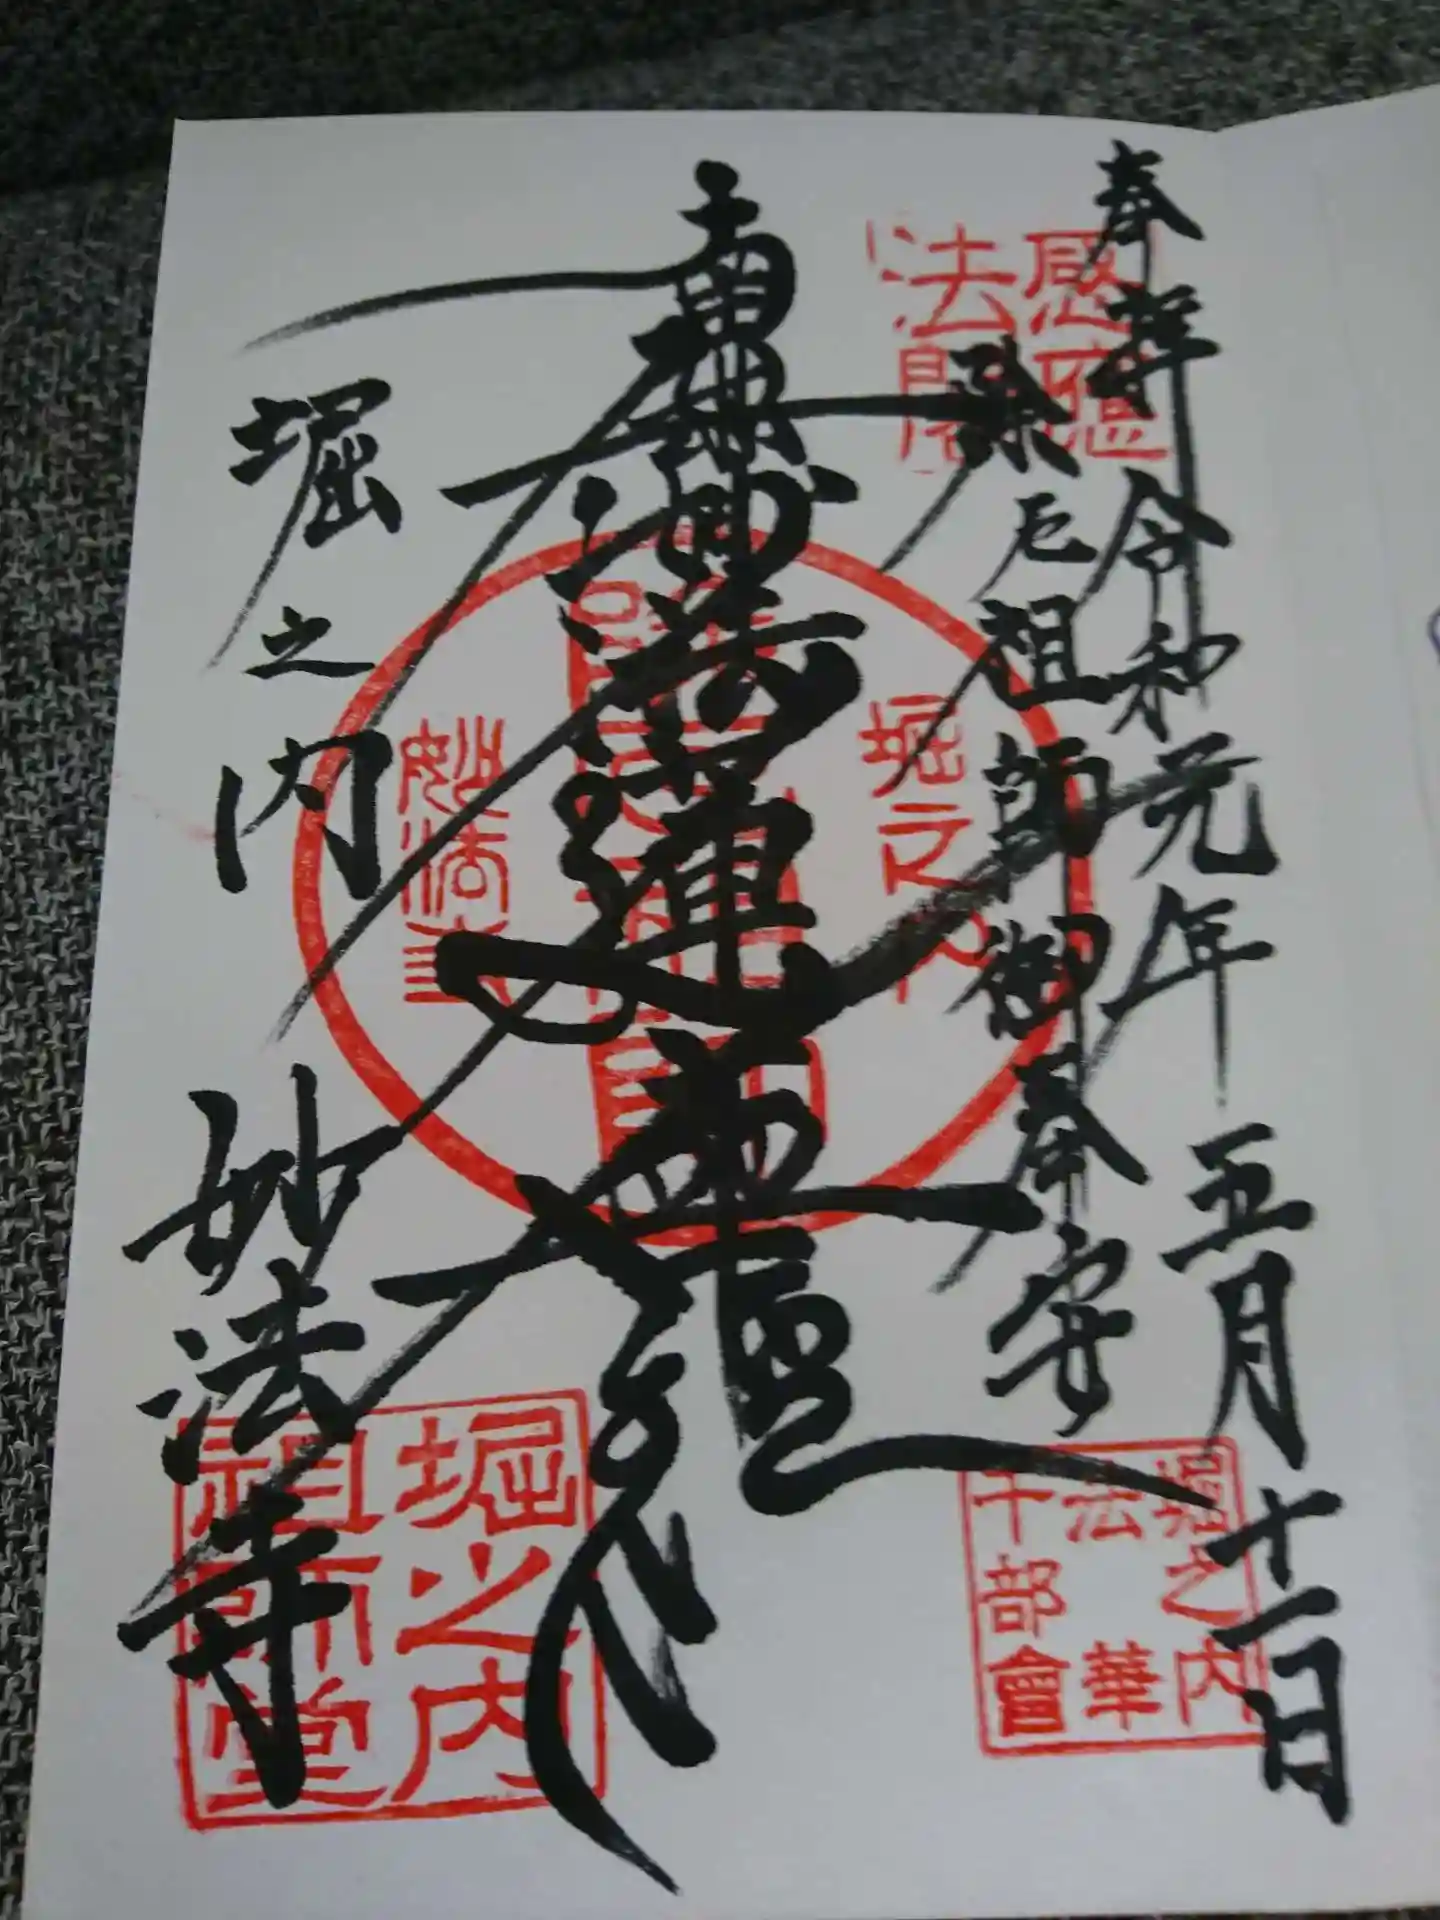 奉拝 令和元年五月十一日
除厄祖師御奉安
南無妙法蓮華經
堀之内 妙法寺
感應
法閣
堀之内
妙法寺
堀之内
法華
千部會
堀之内
祖師堂